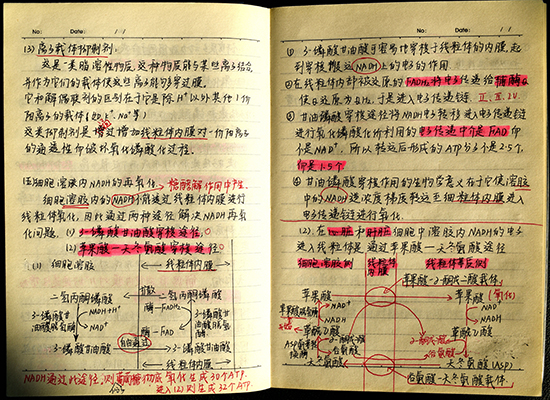 No:   Date:   /   /
(3) 离子载体抑制剂.
这是一类脂溶性物质,这种物质能与某些离子结合,
并作为它们的载体使这些离子能够穿过膜.
它和解偶联剂的区别在于它是除H⁺以外其他1价
阳离子的载体(如K⁺、Na⁺等)
这类抑制剂是通过增加线粒体内膜对一价阳离子
的通透性而破坏氧化磷酸化过程.
细胞溶胶内NADH的再氧化. 糖酵解作用中产生.
细胞溶胶内的NADH不能透过线粒体内膜进行
线粒体氧化,因此通过两种途径解决NADH再氧
化问题. (1) 3-磷酸甘油穿梭途径.
(2) 苹果酸-天冬氨酸穿梭途径
(1) 细胞溶胶 线粒体内膜
二氢丙酮磷酸 扩散 二氢丙酮磷酸
3-磷酸甘油脱氢酶 NADH+H⁺ 酶-FADH₂ 3-磷酸甘油脱氢酶
NAD⁺ 酶-FAD
3-磷酸甘油 3-磷酸甘油
线粒体内膜
NADH通过此途径,则葡萄糖彻底氧化生成30个ATP.
进入(2)则生成32个ATP
No:   Date:   /   /
① 3-磷酸甘油可容易地穿梭于线粒体的内膜,起
到穿梭搬运NADH上的电子的作用.
② 在线粒体内部被还原的FADH₂将电子传递给辅酶Q
使Q还原为QH₂.于是进入电子传递链. II、III、IV.
③ 甘油磷酸穿梭途径将NADH电子转移进入电子传递链
进行氧化磷酸化所利用的电子传递中介是FAD而
不是NAD⁺,所以转运后形成的ATP分子不是2.5个,
而是1.5个
④ 甘油磷酸穿梭作用的生物学意义在于它使溶胶
中的NADH逆浓度梯度转运至线粒体内膜进入
电子传递链进行氧化.
(2). 在心脏和肝脏细胞中溶胶内NADH的电子
进入线粒体是通过苹果酸-天冬氨酸途径
细胞溶胶侧 线粒体内膜 线粒体基质侧
苹果酸-α-酮戊二酸载体.
苹果酸 苹果酸 (氧化)
苹果酸脱氢酶 NAD⁺ NAD⁺
NADH NADH
草酰乙酸 草酰乙酸
α-酮戊二酸 α-酮戊二酸
谷氨酸 谷氨酸
天冬氨酸 天冬氨酸 (ASP)
谷氨酸-天冬氨酸载体.